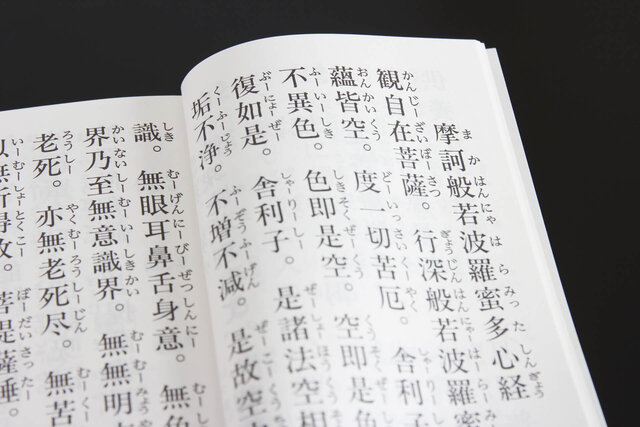 まかはんにゃはらみったしんぎょう
摩訶般若波羅蜜多心経
かんじーざいぼーさつ ぎょうじんはんにゃはーらーみー
観自在菩薩。行深般若波羅蜜
おんかいくう どーいっさいくーやく しゃーりー
蘊皆空。度一切苦厄。舎利
ふーいーしき しきそくぜーくう くうそくぜー
不異色。色即是空。空即是色
ぶーにょーぜー しゃーりーしー ぜーしょーほうくう
復如是。舎利子。是諸法空相
くーふーじょう ふーぞうふーげん ぜーこーくう
垢不浄。不増不減。是故空
しき むーげんにーびーぜっしんいー むー
識。無眼耳鼻舌身意。無色
かいないしーむーいーしきかい むーむーみょう
界乃至無意識界。無無明
ろうしー やくむーろうしーじん むーくー
老死。亦無老死尽。無苦
いーむーしょーとくこー ぼーだいさったー
以無所得故。菩提薩埵